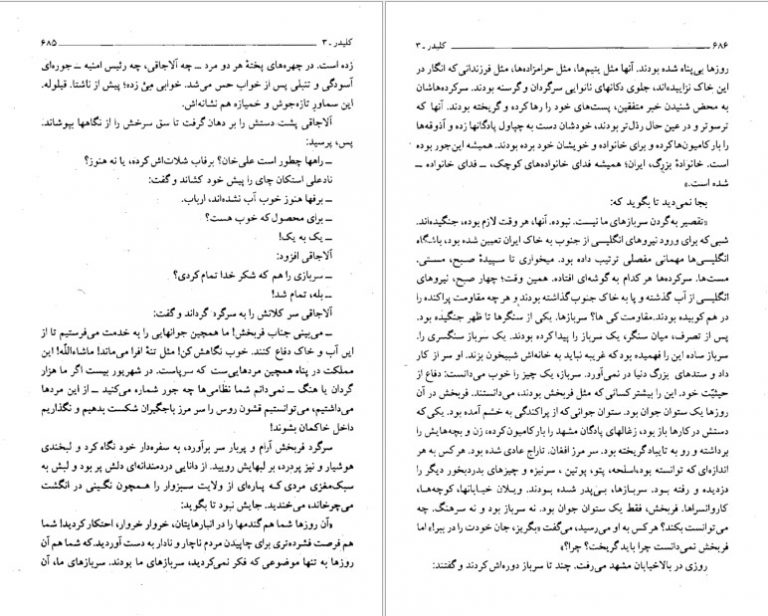 کلیدر ـ ۳ ۶۸۵
زده است. در چهره‌های پختهٔ هر دو مرد ــ چه آلاجاقی، چه رئیس امنیه ــ جوره‌ای
آسودگی و تنبلی پس از خواب حس می‌شد. خوابی مِیْ زده؛ پیش از ناشتا. قیلوله.
این سماورِ تازه‌جوش و خمیازه هم نشانه‌اش.
آلاجاقی پشت دستش را بر دهان گرفت تا سق سرخش را از نگاهها بپوشاند.
پس، پرسید:
ــ راهها چطور است علی‌خان؟ برفاب شلات‌اش کرده، یا نه هنوز؟
نادعلی استکان چای را پیش خود کشاند و گفت:
ــ برفها هنوز خوب آب نشده‌اند، ارباب.
ــ برای محصول که خوب هست؟
ــ یک به یک!
آلاجاقی افزود:
ــ سربازی را هم که شکر خدا تمام کردی؟
ــ بله، تمام شد!
آلاجاقی سر کلانش را به سرگرد گرداند و گفت:
ــ می‌بینی جناب فربخش! ما همچین جوانهایی را به خدمت می‌فرستیم تا از
این آب و خاک دفاع کنند. خوب نگاهش کن! مثل تنهٔ افرا می‌ماند! ماشاءاللّه! این
مملکت در پناه همچین مردهایی‌ست که سرپاست. در شهریور بیست اگر ما هزار
گردان یا هنگ ــ نمی‌دانم شما نظامی‌ها چه جور شماره می‌کنید ــ از این مردها
می‌داشتیم، می‌توانستیم قشون روس را سر مرز باجگیران شکست بدهیم و نگذاریم
داخل خاکمان بشوند!
سرگرد فربخش آرام و پربار سر برآورد، به سفره‌دار خود نگاه کرد و لبخندی
هوشیار و نیز پردرد، بر لبهایش رویید. از دانایی دردمندانه‌ای دلش پر بود و لبش به
سبک‌مغزی مردی که پاره‌ای از ولایت سبزوار را همچون نگینی در انگشت
می‌چرخاند، می‌خندید. جایش نبود تا بگوید:
«آن روزها شما هم گندمها را در انبارهایتان، خروار خروار، احتکار کردید! شما
هم فرصت فشرده‌تری برای چاپیدن مردم ناچار و نادار به دست آوردید. شما هم آن
روزها به تنها موضوعی که فکر نمی‌کردید، سربازهای ما بودند. سربازهای ما، آن
۶۸۶ کلیدر ـ ۳
روزها بی‌پناه شده بودند. آنها مثل یتیم‌ها، مثل حرامزاده‌ها، مثل فرزندانی که انگار در
این خاک نزاییده‌اند، جلوی دکانهای نانوایی سرگردان و گرسنه بودند. سرکرده‌هاشان
به محض شنیدن خبر متفقین، پست‌های خود را رها کرده و گریخته بودند. آنها که
ترسوتر و در عین حال رذل‌تر بودند، خودشان دست به چپاول پادگانها زده و آذوقه‌ها
را بار کامیون‌ها کرده و برای خانواده و خویشان خود برده بودند. همیشه این‌جور بوده
است. خانوادهٔ بزرگ، ایران؛ همیشه فدای خانواده‌های کوچک، ــ فدای خانواده ــ
شده است.»
بجا نمی‌دید تا بگوید که:
«تقصیر به‌گردن سربازهای ما نیست. نبوده. آنها، هر وقت لازم بوده، جنگیده‌اند.
شبی که برای ورود نیروهای انگلیسی از جنوب به خاک ایران تعیین شده بود، باشگاه
انگلیسی‌ها مهمانی مفصلی ترتیب داده بود. میخواری تا سپیدهٔ صبح، مستی.
مست‌ها. سرکرده‌ها هر کدام به گوشه‌ای افتاده. همین وقت؛ چهار صبح، نیروهای
انگلیسی از آب گذشته و پا به خاک جنوب گذاشته بودند و هر چه مقاومت پراکنده را
در هم کوبیده بودند. مقاومت کی ها؟ سربازها. یکی از سنگرها تا ظهر جنگیده بود.
پس از تصرف، میان سنگر، یک سرباز را پیدا کرده بودند. یک سرباز سنگری را.
سرباز ساده این را فهمیده بود که غریبه نباید به خانه‌اش شبیخون بزند. او سر از کار
داد و ستدهای بزرگ دنیا در نمی‌آورد. سرباز، یک چیز را خوب می‌دانست: دفاع از
حیثیّت خود. این را بیشتر کسانی که مثل فربخش بودند، می‌دانستند. فربخش در آن
روزها یک ستوان جوان بود. ستوان جوانی که از پراکندگی به خشم آمده بود. یکی که
دستش در کارها باز بود، زغالهای پادگان مشهد را بار کامیون کرده؛ زن و بچه‌هایش را
برداشته و رو به تایباد گریخته بود. سر مرز افغان. تاراج عادی شده بود. هر کس به هر
اندازه‌ای که توانسته بود، اسلحه، پتو، پوتین ، سرنیزه و چیزهای بدردبخور دیگر را
دزدیده و رفته بود. سربازها، بی‌پدر شده بودند. ویلان خیابانها، کوچه‌ها،
کاروانسراها. فربخش، فقط یک ستوان جوان بود. نه سرباز بود و نه سرهنگ. چه
می‌توانست بکند؟ هر کس به او می‌رسید، می‌گفت «بگریز، جان خودت را در ببر!» اما
فربخش نمی‌دانست چرا باید گریخت؟ چرا؟»
روزی در بالاخیابان مشهد می‌رفت. چند تا سرباز دوره‌اش کردند و گفتند: